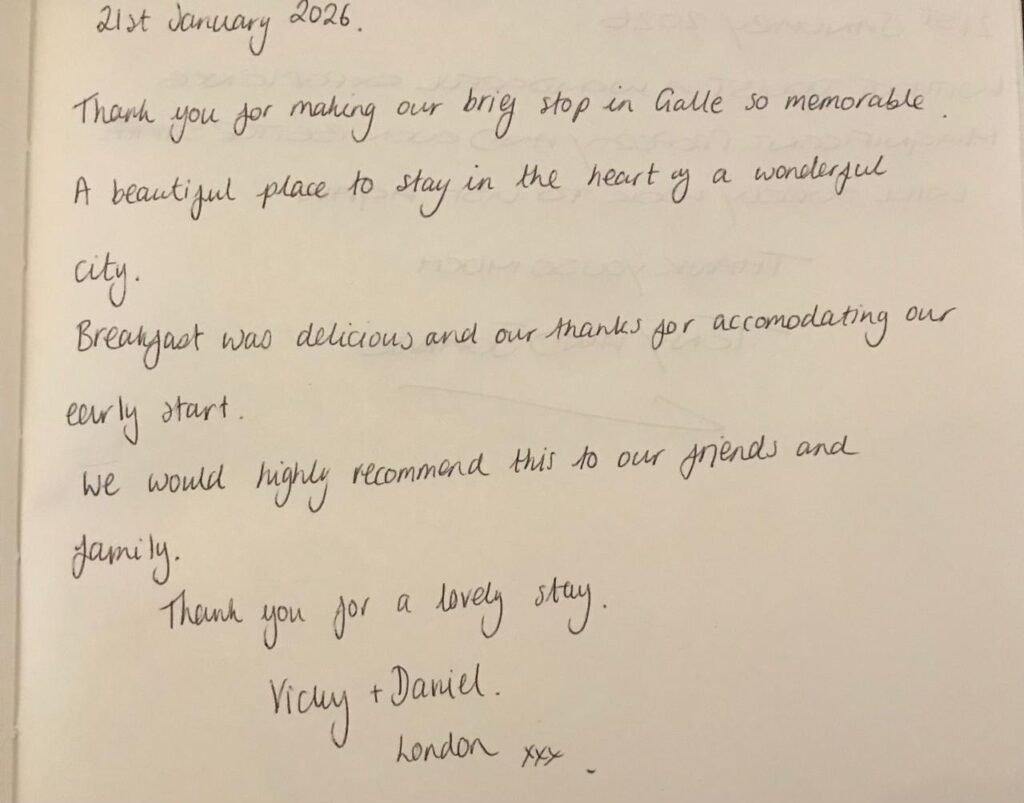 21st January 2026.
Thank you for making our brief stop in Galle so memorable.
A beautiful place to stay in the heart of a wonderful
city.
Breakfast was delicious and our thanks for accomodating our
early start.
We would highly recommend this to our friends and
family.
Thank you for a lovely stay.
Vicky + Daniel.
London xxx.